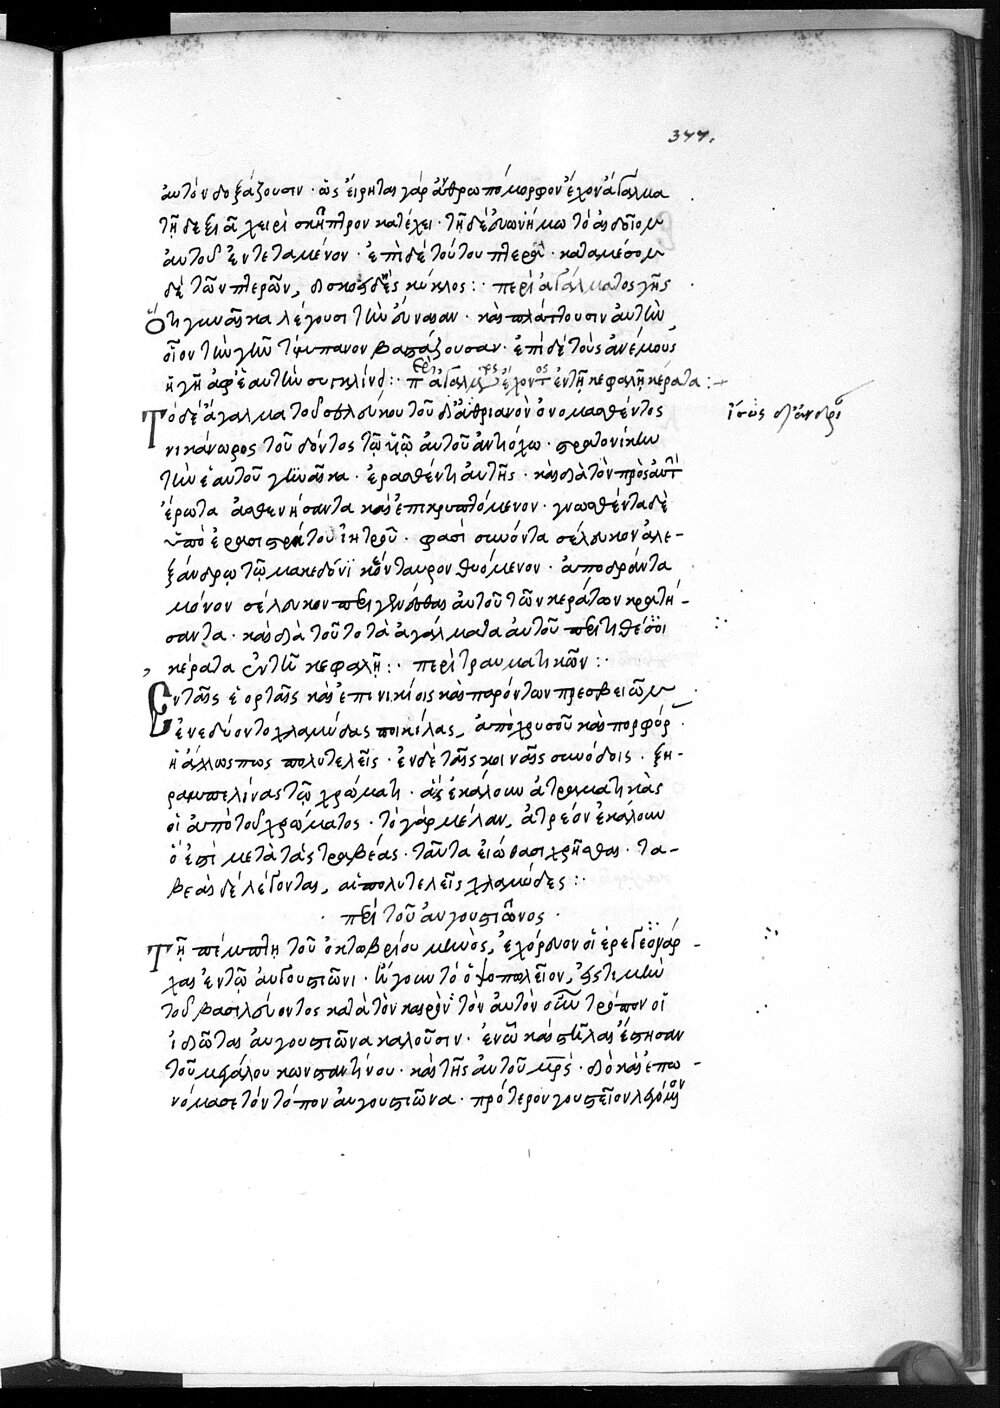 377.
αυτόν δοξάζουσιν · ὡς εἴρηται γὰρ ἀνθρωπόμορφον ἔχον ἄγαλμα
τῆ δεξιᾶ χειρὶ σκῆπτρον κατέχει · τῆ δὲ εὐωνύμω τὸ αἰδοῖον
αυτοῦ ἐντεταμένον · ἐπὶ δὲ τούτου πτερὰ · κατὰ μέσον
δὲ τῶν πτερῶν, δισκοειδὴς κύκλος : περὶ ἀγάλματος γῆς
Ὅτι γυναῖκα λέγουσι τὴν · καὶ πλάττουσιν αὐτὴν
οἷον τὴν γῆν τύμπανον βαστάζουσαν · ἐπειδὲ τοὺς ἀνέμους
ἡ γῆ ἀφ' ἑαυτὴν συγκλείει : περὶ ἀγάλματος ἔχοντος ἐν τῆ κεφαλῆ κέρατα :
Τὸ δὲ ἄγαλμα τοῦ σελεύκου τοῦ ὀνομασθέντος
ἴσως
νικάνωρος τοῦ δόντος τῶ υἱῶ αὐτοῦ ἀντιόχω · στρατονίκην
τὴν ἑαυτοῦ γυναῖκα · ἐρασθέντι αὐτῆς · καὶ διὰ τὸν πρὸς αὐτὴν
ἔρωτα ἀσθενήσαντα καὶ ἐπικρυπτόμενον · γνωσθέντα δὲ
ὑπὸ ἐρασιστράτου ἰητροῦ · φασὶ συνόντα σέλευκον ἀλε-
ξάνδρω τῶ μακεδόνϊ καὶ ταῦρον θυόμενον · ἀποδρόντα
μόνον σέλευκον περιγενέσθαι αὐτοῦ τῶν κεράτων κρατή-
σαντα · καὶ διὰ τοῦτο τὰ ἀγάλματα αὐτοῦ περιτιθέασι
κέρατα ἐν τῆ κεφαλῆ : περὶ τραυματικῶν :
Ἐν ταῖς ἑορταῖς καὶ ἐπινικίοις καὶ παρόντων πρεσβειῶν
ἐνεδύοντο χλαμύδας ποικίλας, ἀπὸ χρυσοῦ καὶ πορφύρ
ἢ ἄλλως πως πολυτελεῖς · ἐν δὲ ταῖς κοιναῖς συνόδοις · ξη-
ραμπελίνας τῶ χρώματι · ἃς ἐκάλουν ἀτραματικὰς
οἱ ἀπὸ τοῦ χρώματος · τὸ γὰρ μέλαν, ἀτρέον ἐκάλουν
ὅ ἐστι μετὰ τὰς τραβέας · ταῦτα εἰώθασι χρῆσθαι · τα-
βεὰς δὲ λέγονται, αἱ πολυτελεῖς χλαμύδες :
· περὶ τοῦ αὐγουστιῶνος ·
Τῆ πέμπτη τοῦ ὀκτωβρίου μηνὸς, ἐχόρευον οἱ ῥεγεονάρ-
χαι ἐν τῶ αὐγουστιῶνι · ἤγουν τὸ ὀψοπωλεῖον, εἰς τιμὴν
τοῦ βασιλεύοντος κατὰ τὸν καιρὸν τὸν αὐτὸν οὖν τρόπον οἱ
ἰδιῶται αὐγουστιῶνα καλοῦσιν · ἐν ᾧ καὶ στῆλαι ἔστησαν
τοῦ μεγάλου κωνσταντίνου · καὶ τῆς αὐτοῦ μρς · διὸ καὶ ἐπω-
νόμασε τὸν τόπον αὐγουστιῶνα · πρότερον γουστεῖον λεγόμενον